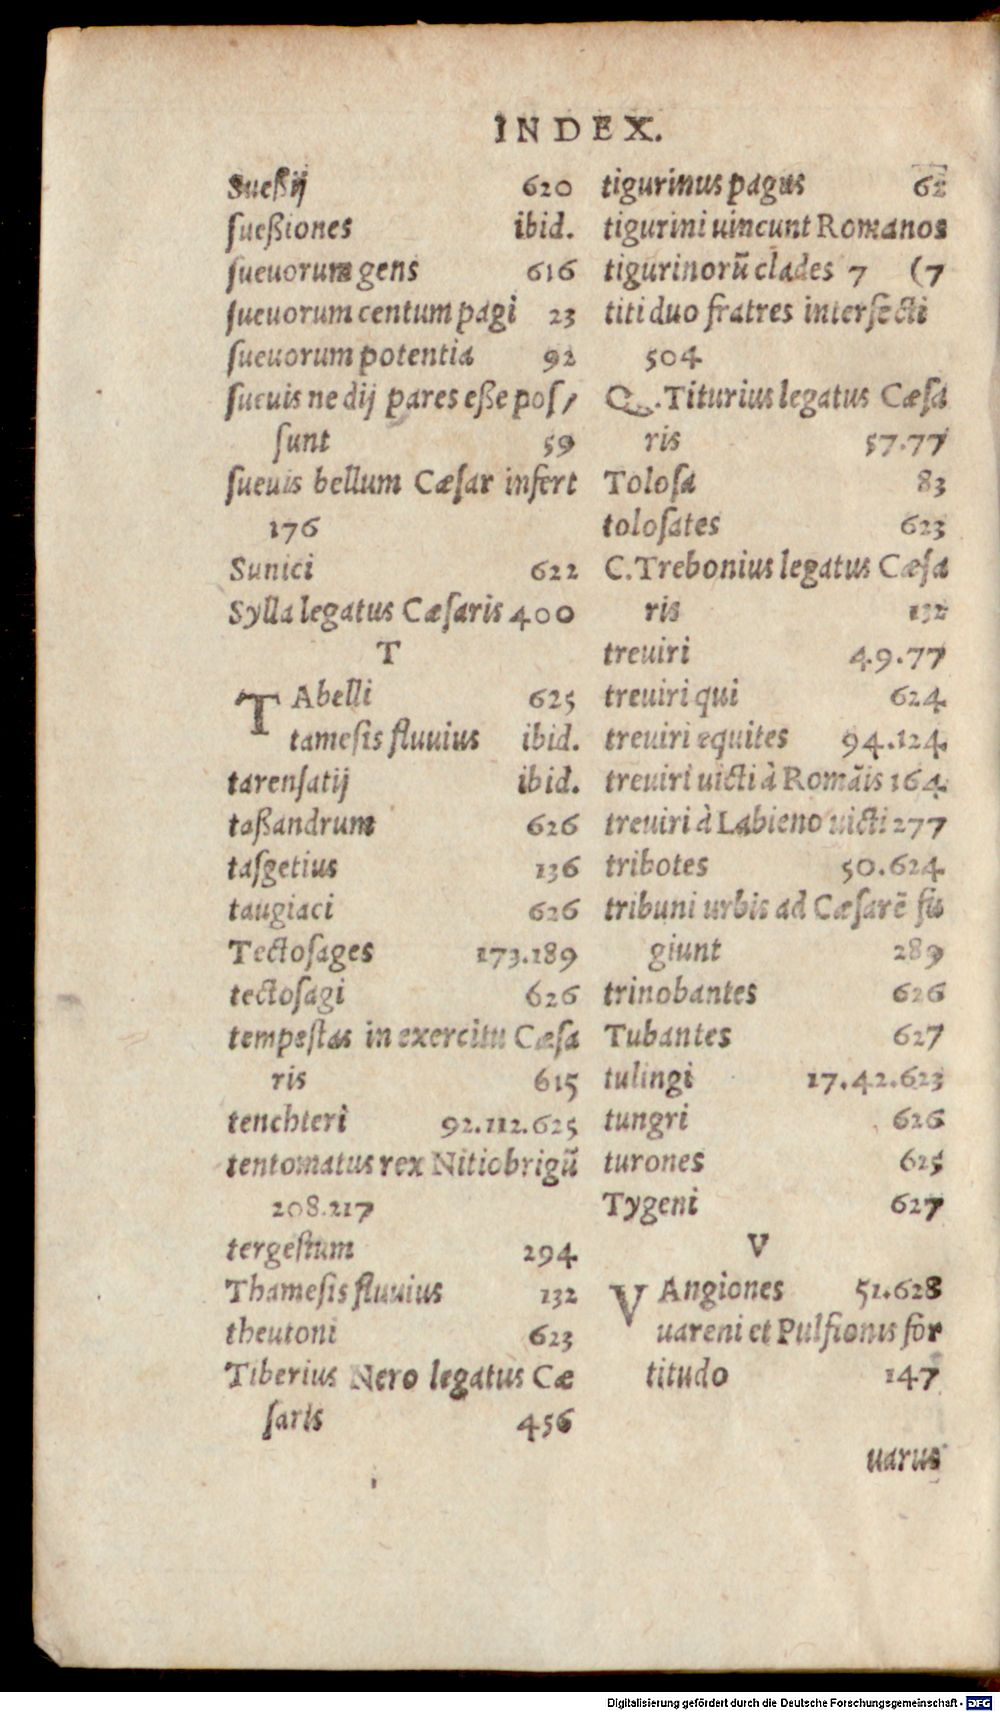 INDEX.
Sueßij 620
ſueßiones ibid.
ſueuorum gens 616
ſueuorum centum pagi 23
ſueuorum potentia 92
ſueuis ne dij pares eße poſ/
ſunt 59
ſueuis bellum Cæſar infert
176
Sunici 622
Sylla legatus Cæſaris 400
T
TAbelli 625
tameſis fluuius ibid.
tarenſatij ibid.
taßandrum 626
taſgetius 136
taugiaci 626
Tectoſages 173.189
tectoſagi 626
tempeſtas in exercitu Cæſa
ris 615
tenchteri 92.112.625
tentomatus rex Nitiobrigũ
208.217
tergeſtum 294
Thameſis fluuius 132
theutoni 623
Tiberius Nero legatus Cæ
ſaris 456
tigurinus pagus 62
tigurini uincunt Romanos
tigurinorũ clades 7 (7
titi duo fratres interfecti
504
Q. Titurius legatus Cæſa
ris 57.77
Toloſa 83
toloſates 623
C. Trebonius legatus Cæſa
ris 132
treuiri 49.77
treuiri qui 624
treuiri equites 94.124
treuiri uicti à Romãis 164
treuiri à Labieno uicti 277
tribotes 50.624
tribuni urbis ad Cæſarẽ fu
giunt 289
trinobantes 626
Tubantes 627
tulingi 17.42.623
tungri 626
turones 625
Tygeni 627
V
VAngiones 51.628
uareni et Pulfionis for
titudo 147
uarus
Digitalisierung gefördert durch die Deutsche Forschungsgemeinschaft - DFG